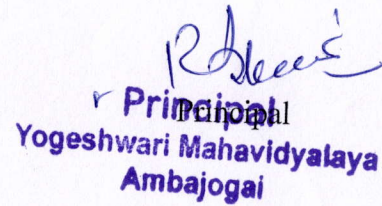 Principal
Principal
Yogeshwari Mahavidyalaya
Ambajogai